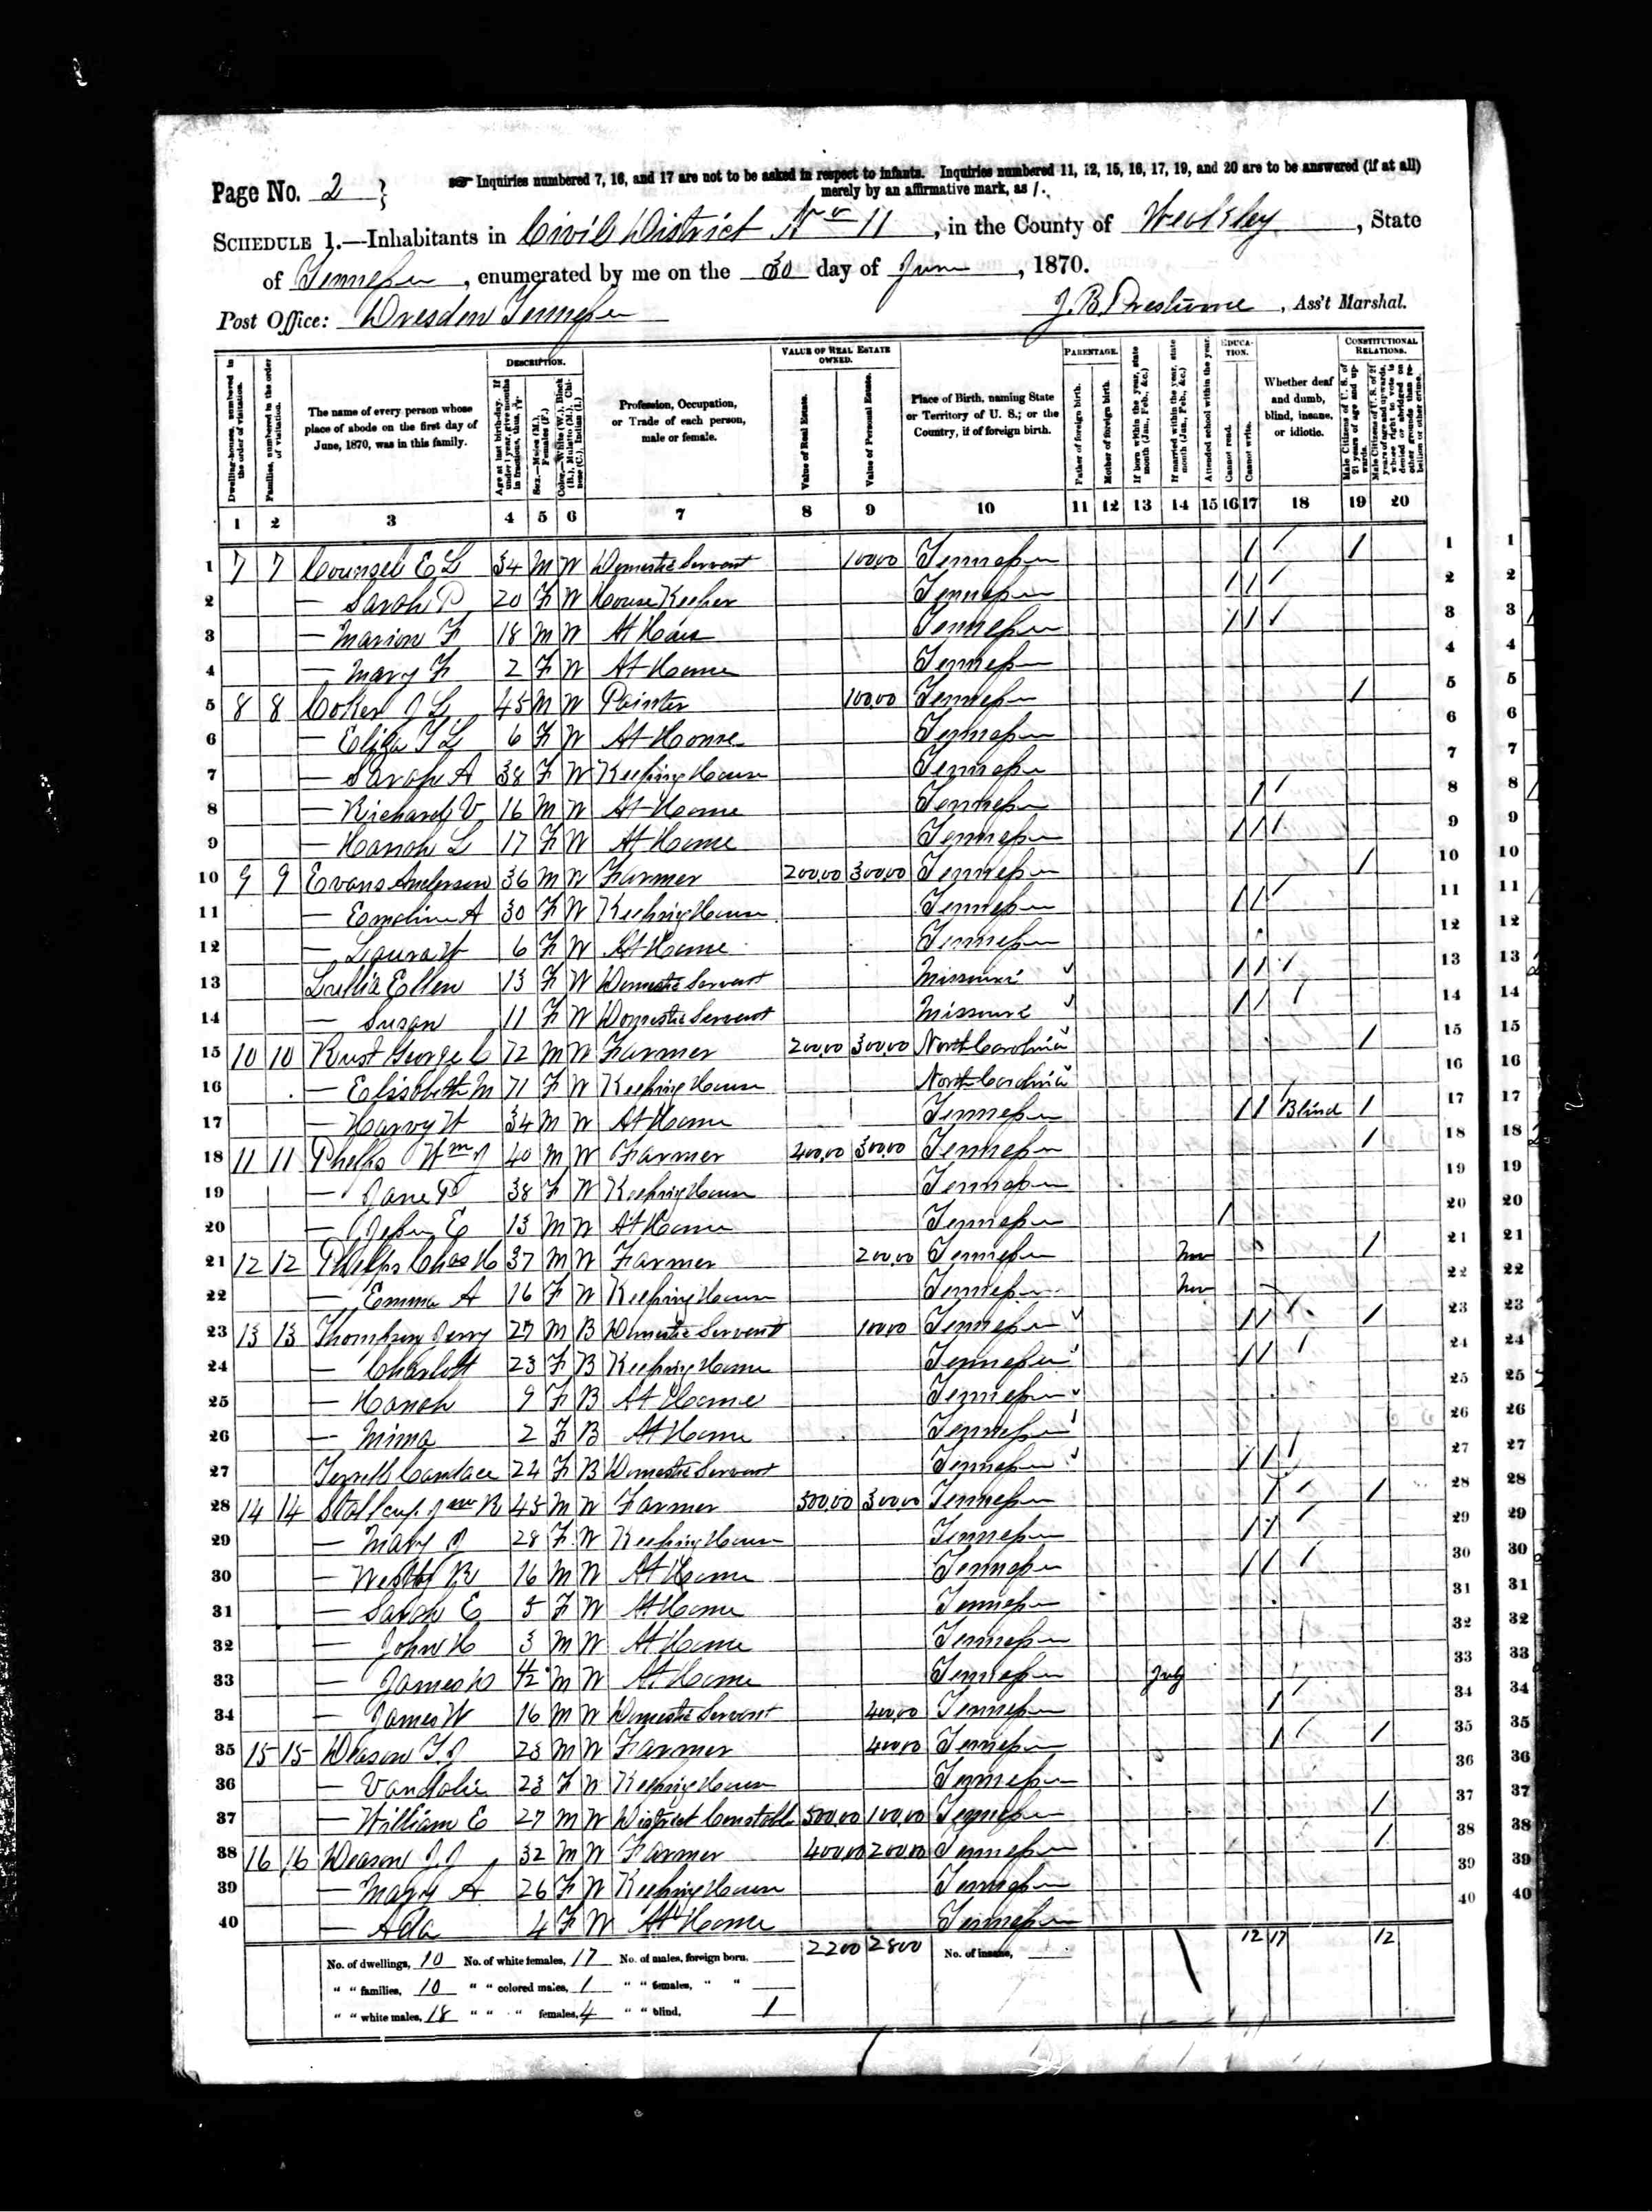 Page No. 2
Inquiries numbered 7, 16, and 17 are not to be asked in respect to infants. Inquiries numbered 11, 12, 15, 16, 17, 19, and 20 are to be answered (if at all)
merely by an affirmative mark, as /.
SCHEDULE 1.—Inhabitants in Civil District No 11, in the County of Weakley, State
of Tennessee, enumerated by me on the 30 day of June, 1870.
Post Office: Dresden Tennessee
J. B., Ass't Marshal.
DESCRIPTION. VALUE OF REAL ESTATE OWNED. PARENTAGE. EDUCATION. CONSTITUTIONAL RELATIONS.
Dwelling-houses, numbered in the order of visitation.
Families, numbered in the order of visitation.
The name of every person whose place of abode on the first day of June, 1870, was in this family.
Age at last birth-day. If under 1 year, give months in fractions, thus,
Sex.—Males (M.), Females (F.)
Color.—White (W.), Black (B.), Mulatto (M.), Chinese (C.), Indian (I.)
Profession, Occupation, or Trade of each person, male or female.
Value of Real Estate.
Value of Personal Estate.
Place of Birth, naming State or Territory of U. S.; or the Country, if of foreign birth.
Father of foreign birth.
Mother of foreign birth.
If born within the year, state month (Jan., Feb., &c.)
If married within the year, state month (Jan., Feb., &c.)
Attended school within the year.
Cannot read.
Cannot write.
Whether deaf and dumb, blind, insane, or idiotic.
Male Citizens of U. S. of 21 years of age and upwards.
Male Citizens of U. S. of 21 years of age and upwards, whose right to vote is denied or abridged on other grounds than rebellion or other crime.
1 2 3 4 5 6 7 8 9 10 11 12 13 14 15 16 17 18 19 20
1 7 7 Councel E L 34 M W Domestic Servant 100.00 Tennessee / / / 1
2 — Sarah P 20 F W House Keeper Tennessee / / / 2
3 — Marion F 18 M W At Home Tennessee / / / 3
4 — Mary F 2 F W At Home Tennessee 4
5 8 8 Coker J L 45 M W Painter 100.00 Tennessee / 5
6 — Eliza T L 6 F W At Home Tennessee 6
7 — Sarah A 38 F W Keeping House Tennessee 7
8 — Richard V 16 M W At Home Tennessee / / 8
9 — Hanah L 17 F W At Home Tennessee / / / 9
10 9 9 Evans Anderson 36 M W Farmer 200.00 300.00 Tennessee / 10
11 — Emeline A 30 F W Keeping House Tennessee / / / 11
12 — Laura W 6 F W At Home Tennessee 12
13 Ellen 13 F W Domestic Servant Missouri / / / 13
14 — Susan 11 F W Domestic Servant Missouri / / / 14
15 10 10 Rust George C 72 M W Farmer 200.00 300.00 North Carolina / 15
16 — Elisabeth M 71 F W Keeping House North Carolina 16
17 — Harvy W 34 M W At Home Tennessee / / Blind / 17
18 11 11 Phelps Wm J 40 M W Farmer 400.00 300.00 Tennessee / 18
19 — Jane P 38 F W Keeping House Tennessee 19
20 — John E 13 M W At Home Tennessee / 20
21 12 12 Phelps Chas H 37 M W Farmer 200.00 Tennessee Nov / 21
22 — Emma A 16 F W Keeping House Tennessee Nov 22
23 13 13 Thompson Jerry 27 M B Domestic Servant 100.00 Tennessee / / / / 23
24 — Charlott 23 F B Keeping House Tennessee / / / 24
25 — Hanah 9 F B At Home Tennessee 25
26 — Mima 2 F B At Home Tennessee 26
27 Terrell Candace 22 F B Domestic Servant Tennessee / / / 27
28 14 14 Stallcup B 45 M W Farmer 500.00 300.00 Tennessee / / / 28
29 — Mary J 28 F W Keeping House Tennessee / / / 29
30 — B 16 M W At Home Tennessee / / / 30
31 — Sarah E 5 F W At Home Tennessee 31
32 — John H 3 M W At Home Tennessee 32
33 — James M W At Home Tennessee July 33
34 — James W 16 M W Domestic Servant 400.00 Tennessee / / 34
35 15 15 Deason T J 23 M W Farmer 400.00 Tennessee / / / 35
36 — Vandalie 23 F W Keeping House Tennessee 36
37 — William E 27 M W District Constable 500.00 100.00 Tennessee / 37
38 16 16 Deason J J 32 M W Farmer 400.00 200.00 Tennessee / 38
39 — Mary A 26 F W Keeping House Tennessee 39
40 — Ada 4 F W At Home Tennessee 40
No. of dwellings, 10 No. of white females, 17 No. of males, foreign born, 2200 2800 No. of insane, 12 17 12
" " families, 10 " " colored males, 1 " " females, " "
" " white males, 18 " " " females, 4 " " blind, 1